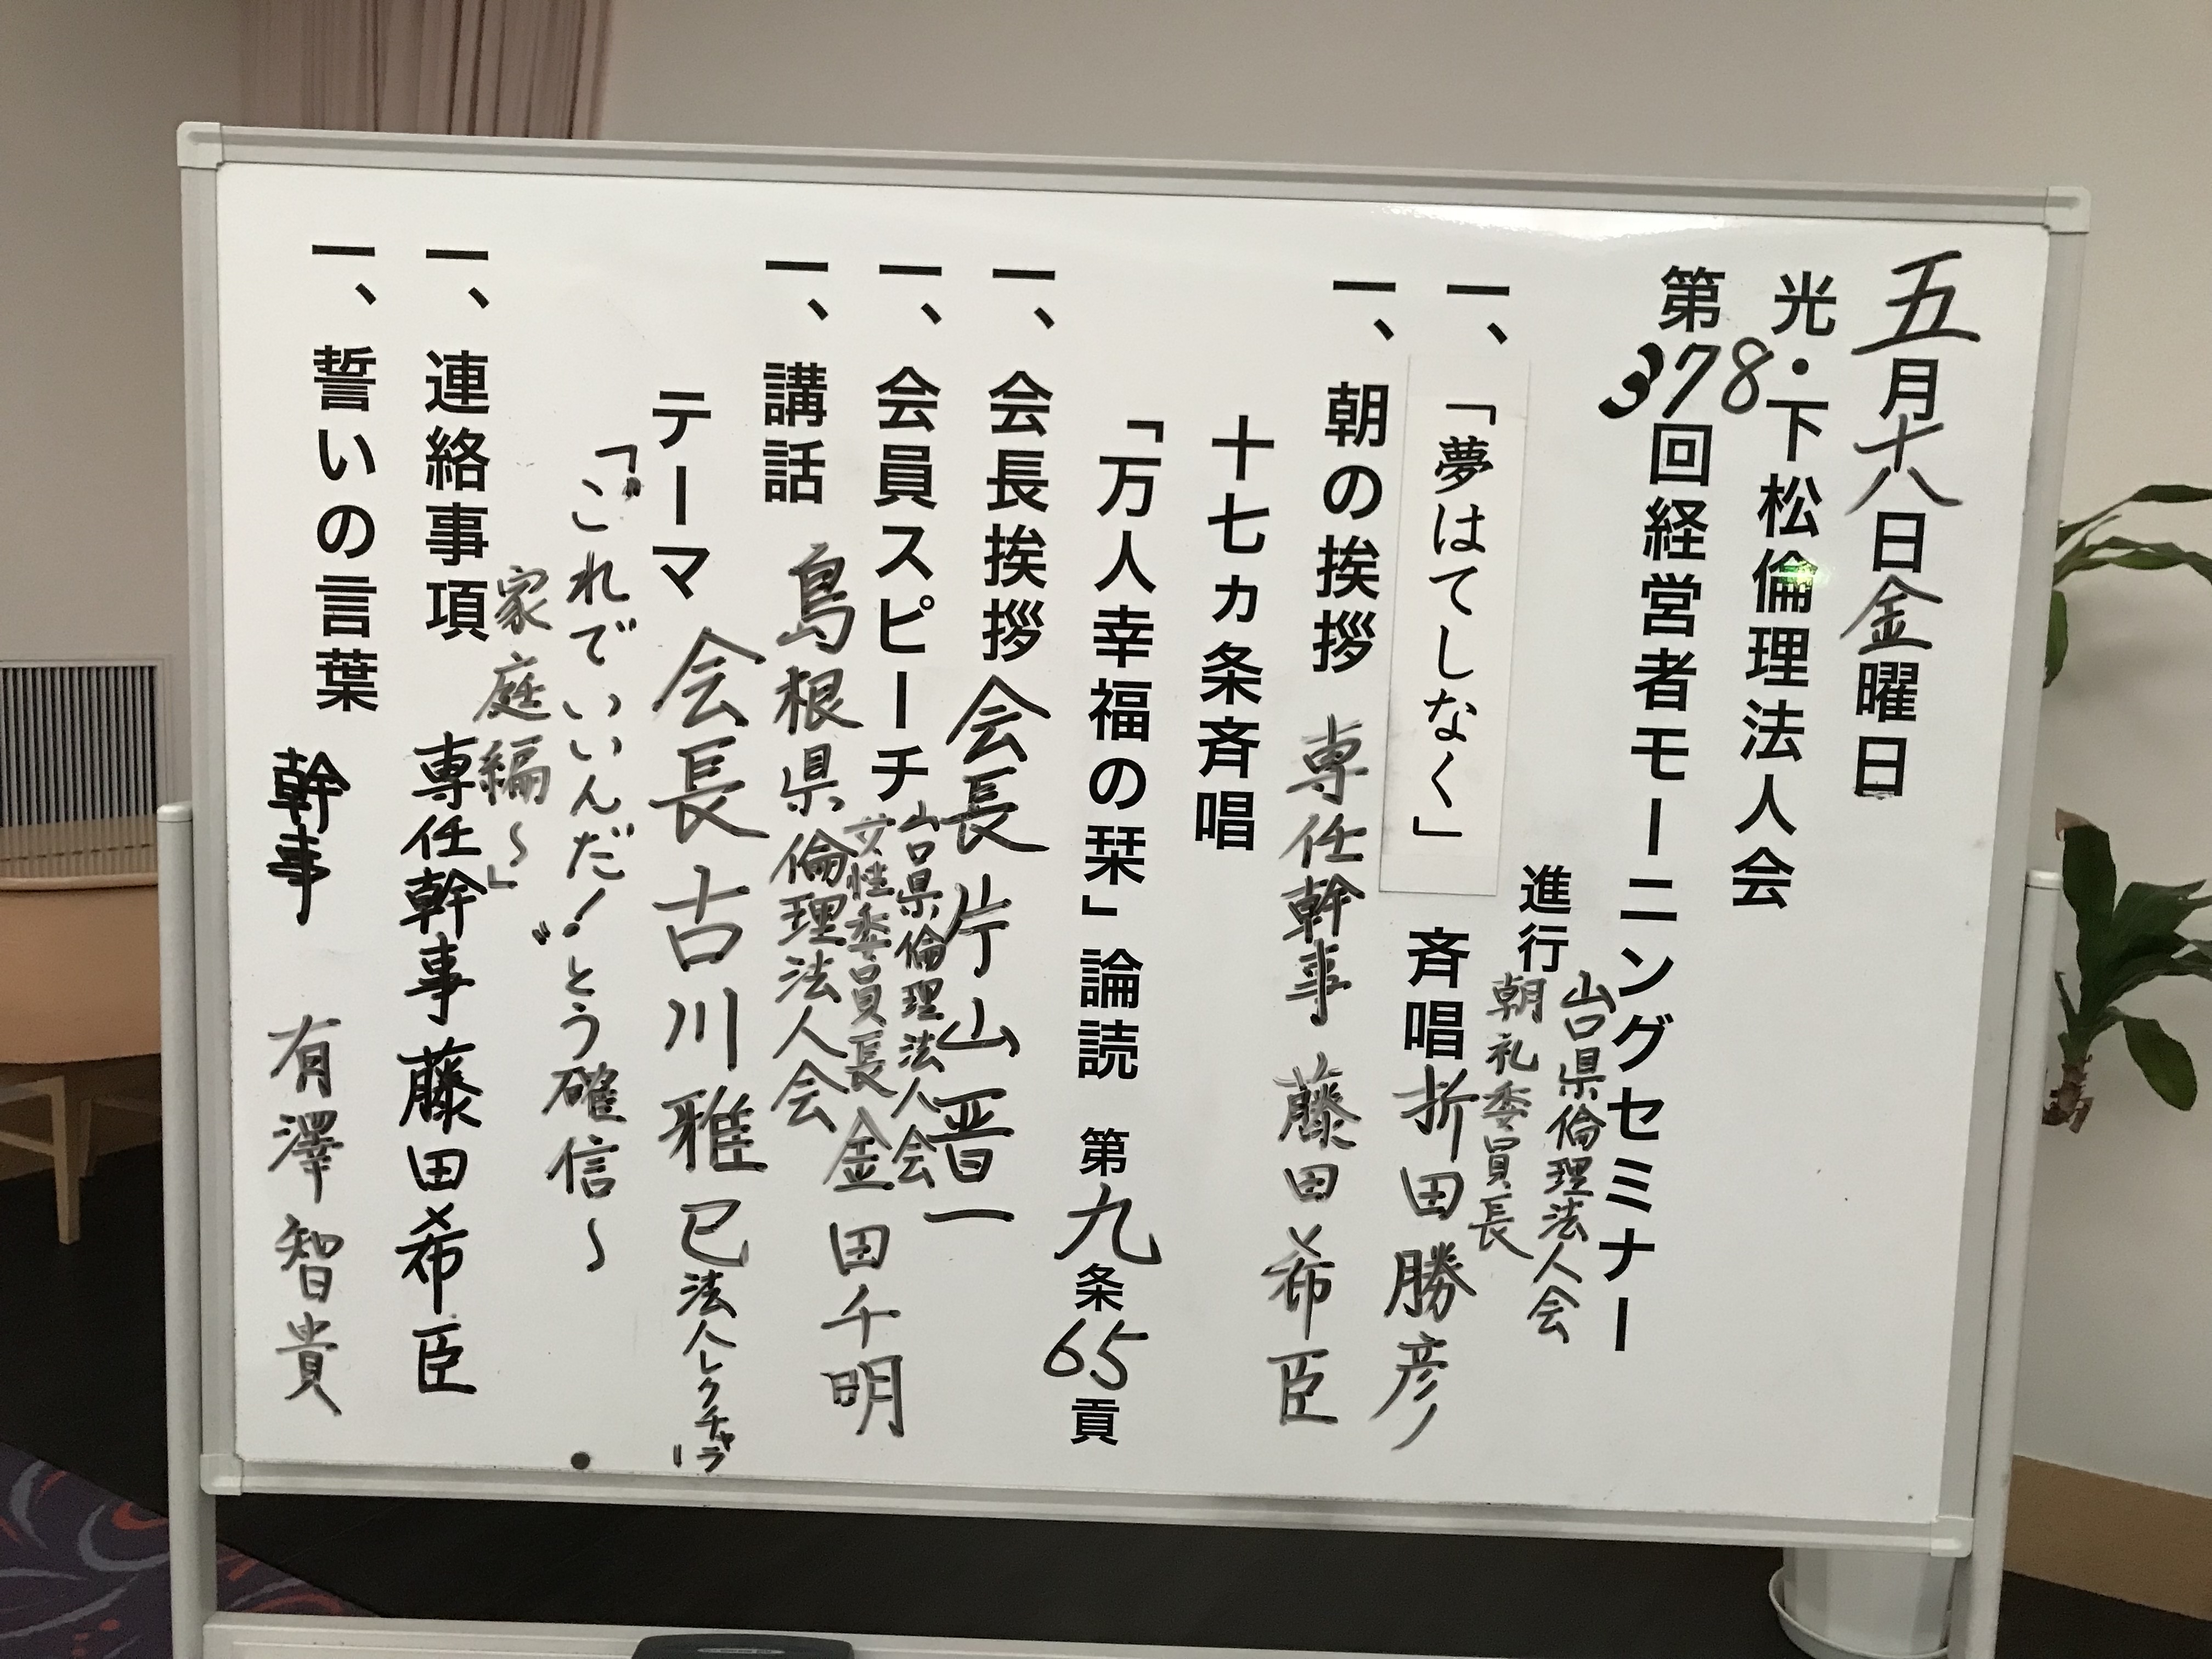 五月十八日金曜日
光・下松倫理法人会
第378回経営者モーニングセミナー
進行
山口県倫理法人会
朝礼委員長
一、「夢はてしなく」斉唱 折田勝彦
一、朝の挨拶 専任幹事 藤田希臣
十七ヵ条斉唱
「万人幸福の栞」論読 第九条65貢
一、会長挨拶 会長 片山晋一
一、会員スピーチ
山口県倫理法人会
女性委員長 金田千明
一、講話 島根県倫理法人会
会長 古川雅巳 法人レクチャラー
テーマ
「"これでいいんだ!"とう確信〜
家庭編〜」
一、連絡事項 専任幹事 藤田希臣
一、誓いの言葉 幹事 有澤智貴